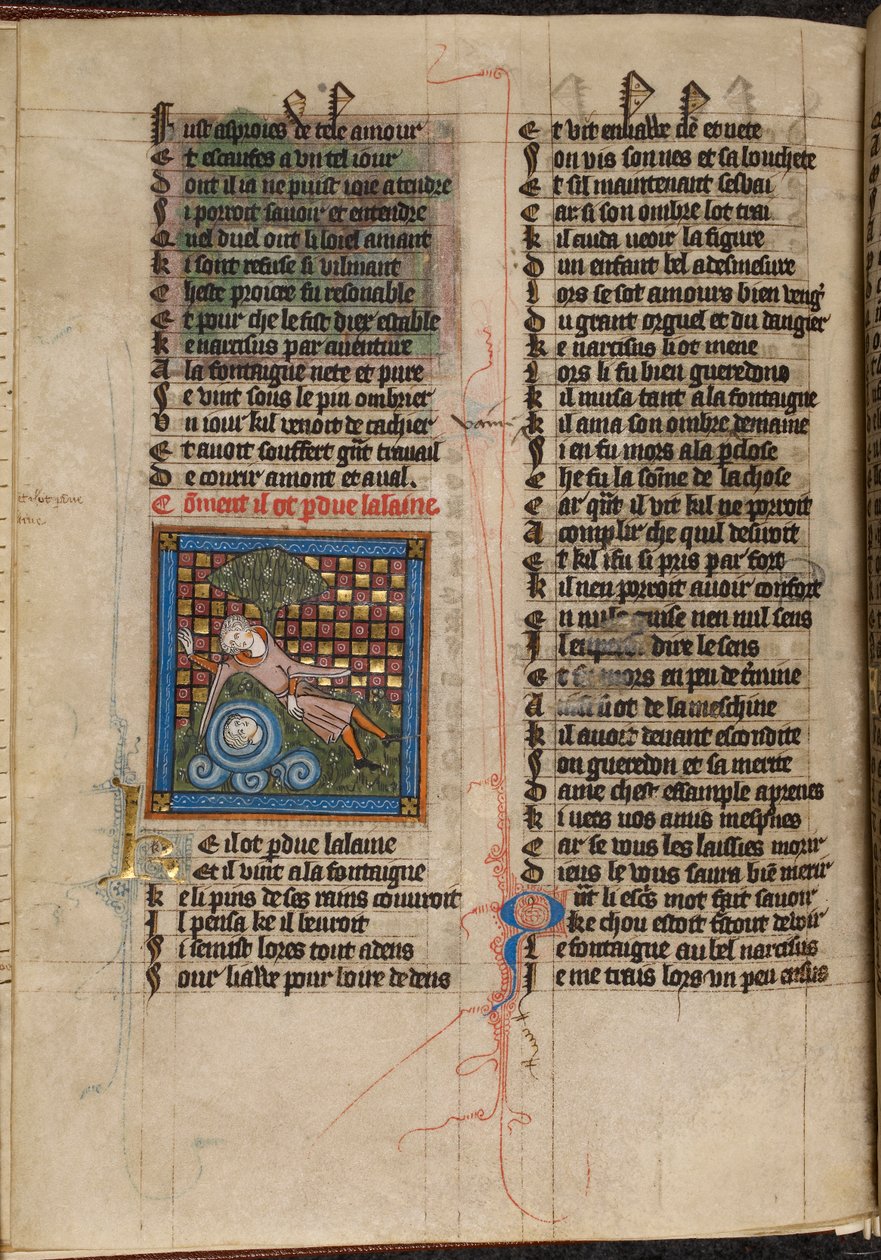 Fust asproies de tele amour
Et escaufes a vn tel iour
Dont il ia ne puist ioie atendre
Si porroit sauoir et entendre
Quel duel ont li loiel amant
Ki sont refuse si vilmant
Cheste proiere fu resonable
Et pour che le fist diex estable
Ke narcisus par auenture
A la fontaigne nete et pure
Se vint sous le pin ombrier
Vn iour kil venoit de cachier
Et auoit souffert gnt trauail
De courir amont et aual.
Coment il ot pdue lalaine.
Ke il ot pdue lalaine
Et il vint a la fontaigne
Ke li pins de ses rains couuroit
Il pensa ke il beuroit
Si semist lores tout adens
Sour liawe pour boire dedens
Et vit en liawe clere et nete
Son vis son nes et sa bouchete
Et sil maintenant sesbai
Car si son ombre lot trai
Kil cuda ueoir la figure
Dun enfant bel a desmesure
Lors se sot amours bien veng
Du grant orguel et du dangier
Ke narcisus li ot mene
Lors li fu bien gueredons
Kil musa tant a la fontaigne
Kil ama son ombre demaine
Si en fu mors a la pclose
Che fu la some de lachose
Car qnt il vit kil ne porroit
Acomplir che quil desiroit
Et kil i fu si pris par fort
Kil nen porroit auoir confort
En nule guise nen nul sens
Il en dire le sens
Et mors en peu de tmine
A ot de lameschine
Kil auoit deuant escondite
Son gueredon et sa merite
Dame chest essample aprenes
Ki uers uos amis mespnes
Car se vous les laissies morir
Diens le vous saura bie merir
Qnt li escs mot fait sauoir
Ke chou estoit
Le fontaigne au bel narcisus
Ie me trais lors vn peu ensus